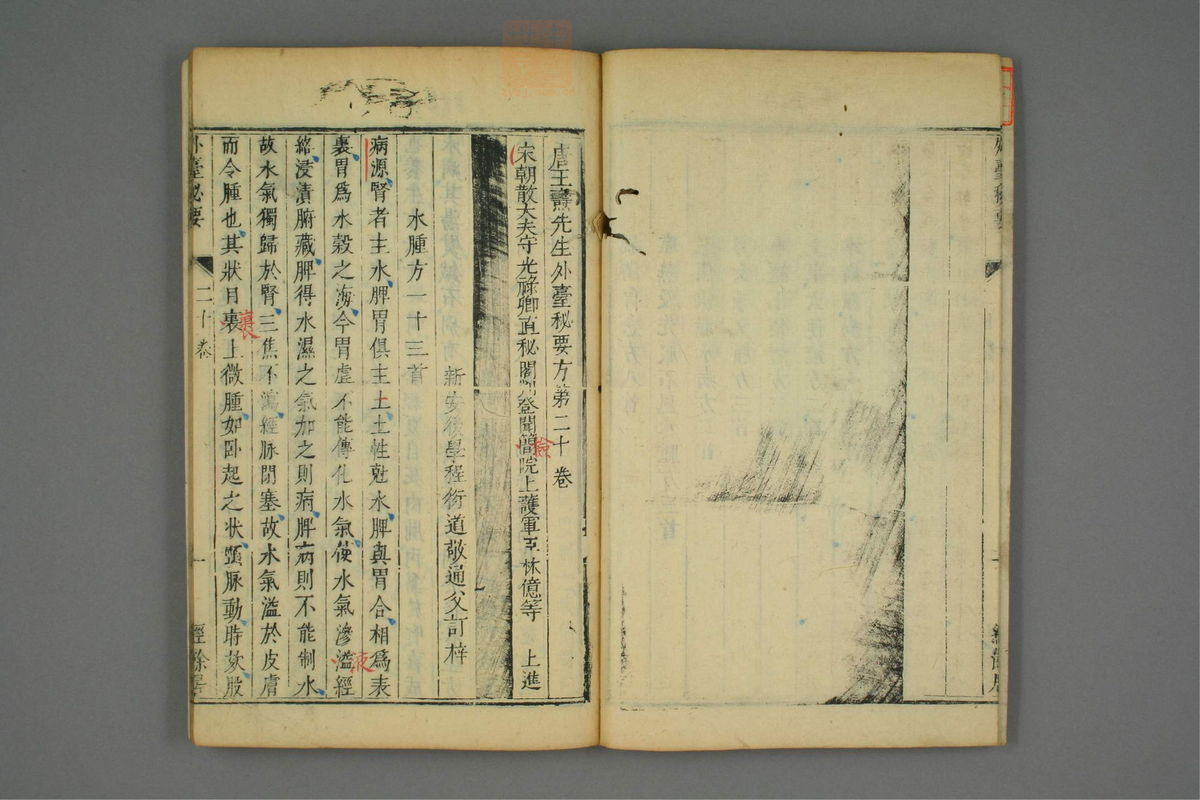 唐王燾先生外臺秘要方第二十卷
宋朝散大夫守光祿卿直秘閣判登聞簡院上護軍臣林億等 上進
檢
新安後學程衍道敬通父訂梓
水腫方一十三首
病源腎者主水脾胃俱主土土性尅水脾與胃合相爲表
裏胃爲水穀之海今胃虛不能傳化水氣使水氣滲溢經
液
絡浸漬腑藏脾得水濕之氣加之則病脾病則不能制水
故水氣獨歸於腎三焦不瀉經脉閉塞故水氣溢於皮膚
而令腫也其狀目裏上微腫如卧起之状頸脉動時欬股
裹
外臺秘要
二十卷
一
經餘居